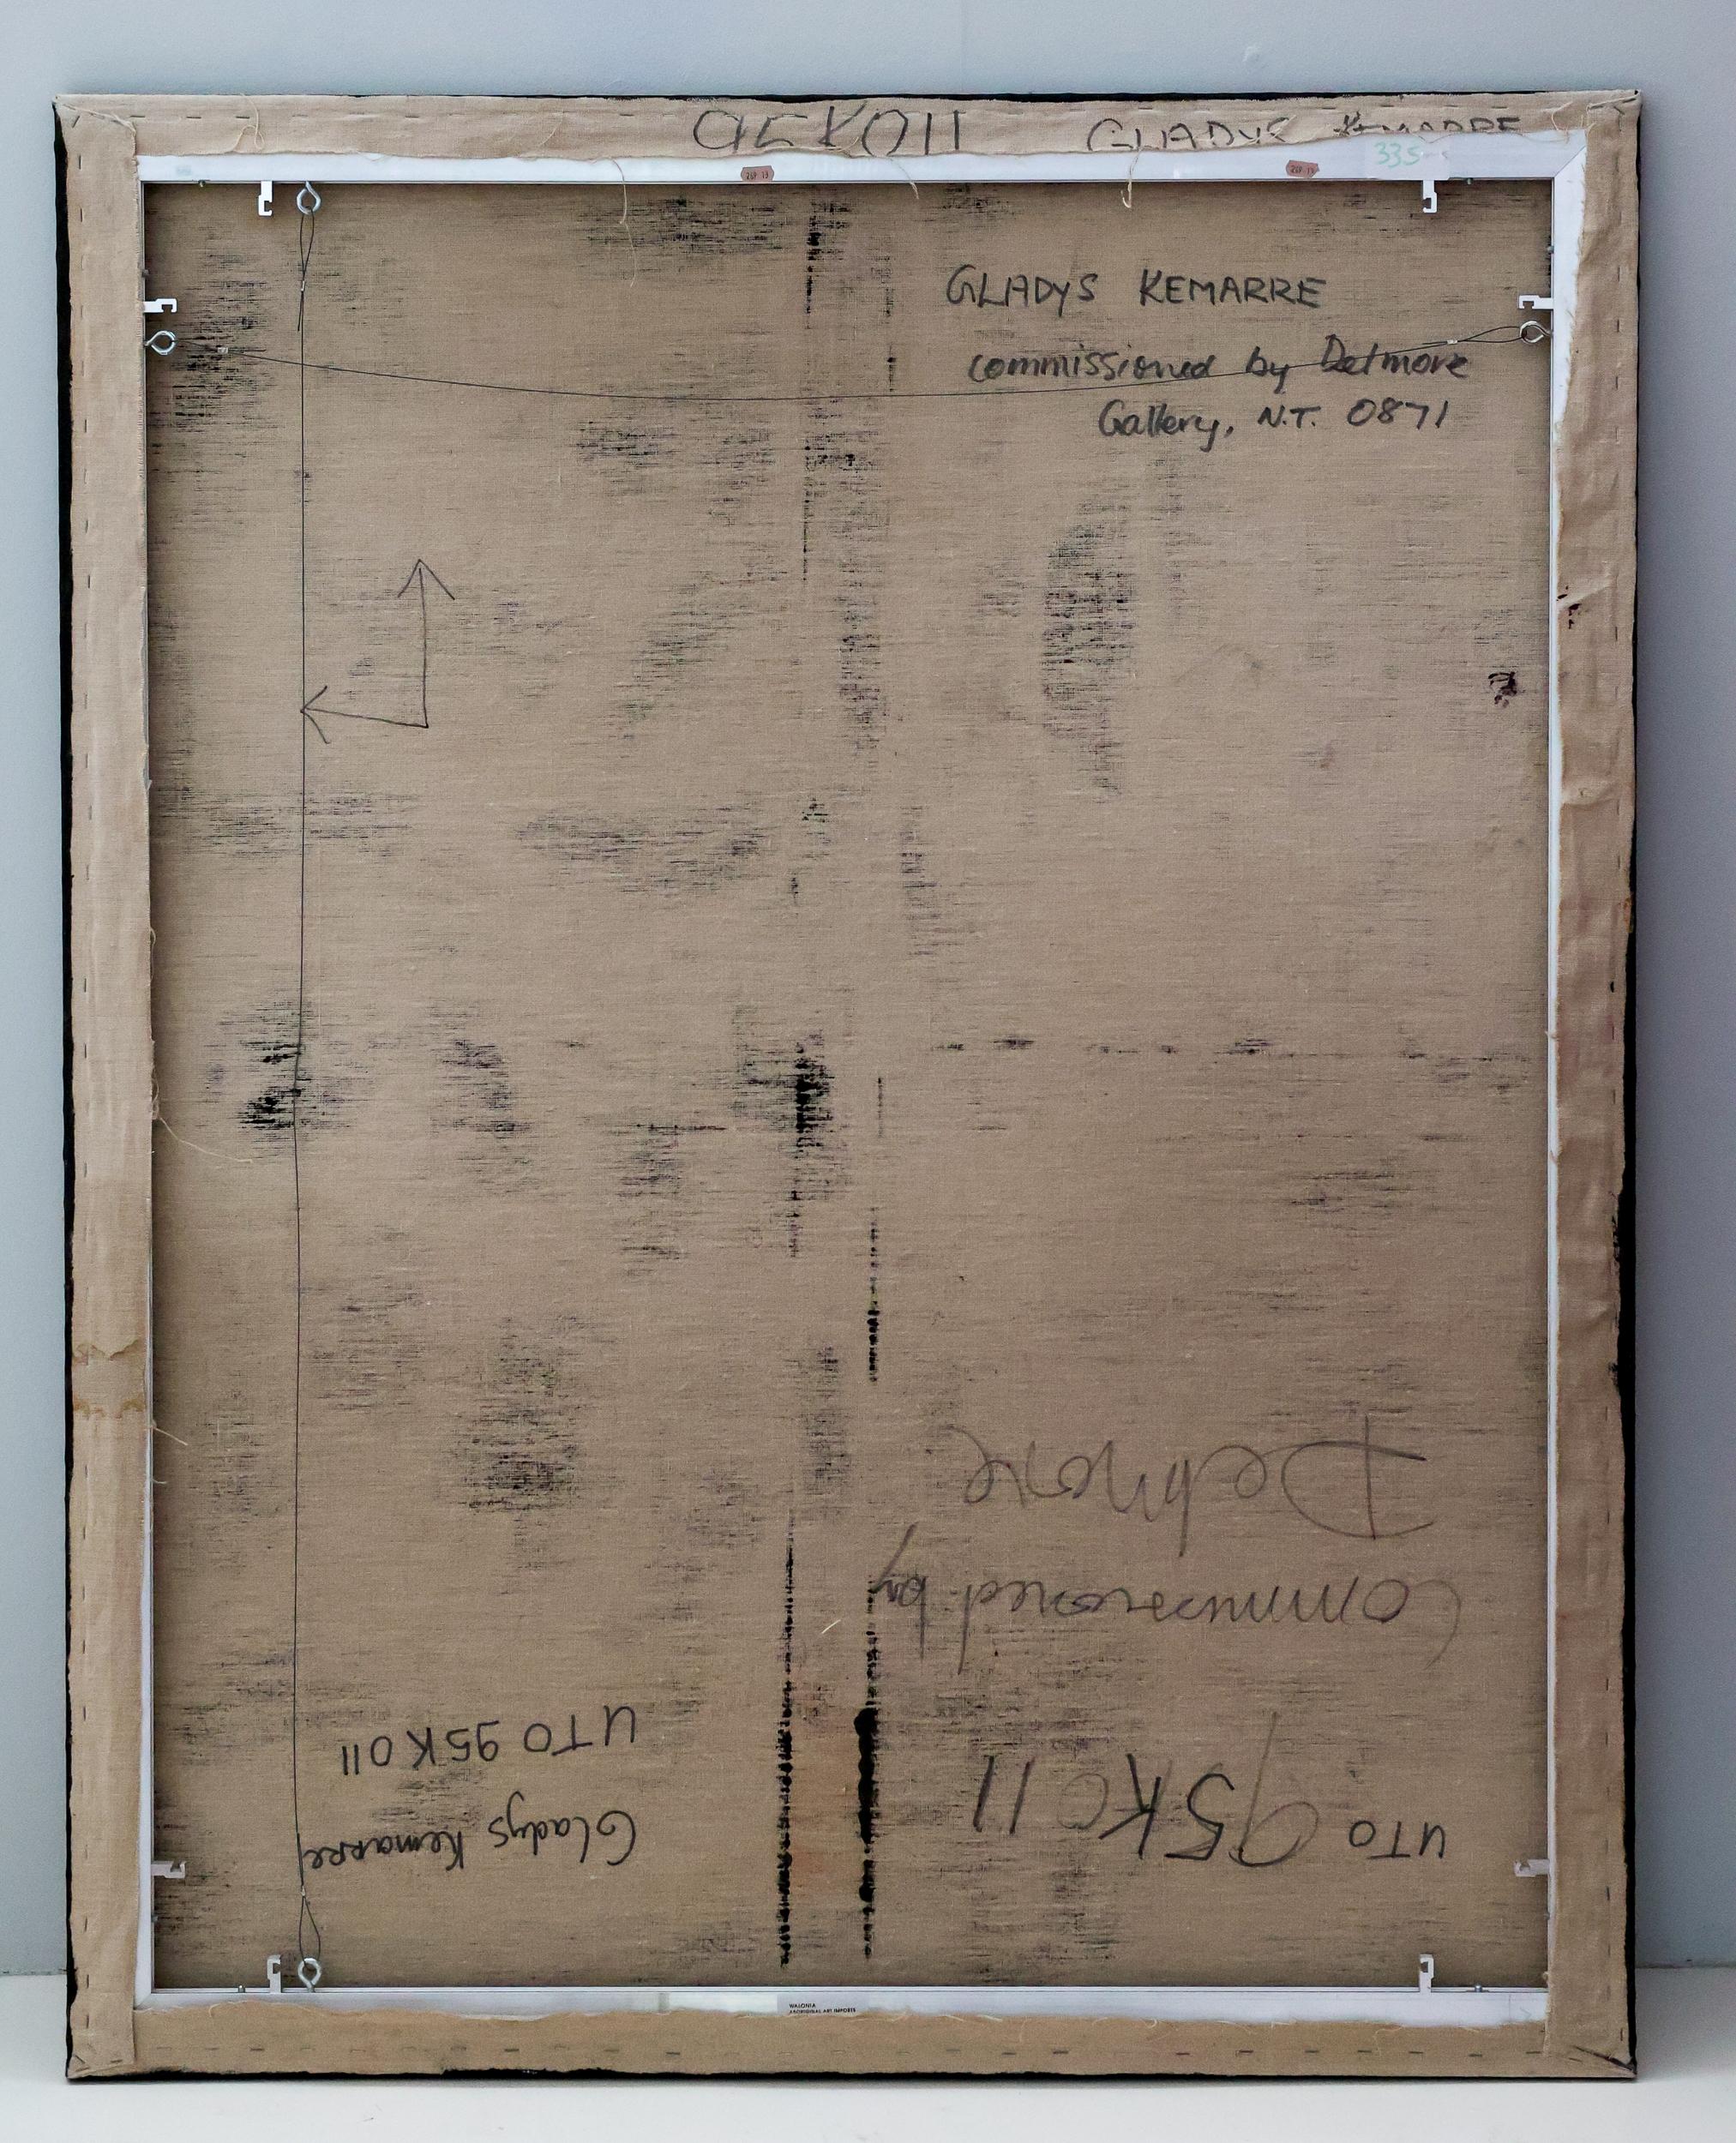 95K011 GLADYS KEMARRE
335
GLADYS KEMARRE
commissioned by Delmore
Gallery, N.T. 0871
Delmore
Commissioned by
UTO 95K011
Gladys Kemarre
UTO 95K011
WALONIA
ABORIGINAL ART IMPORTS